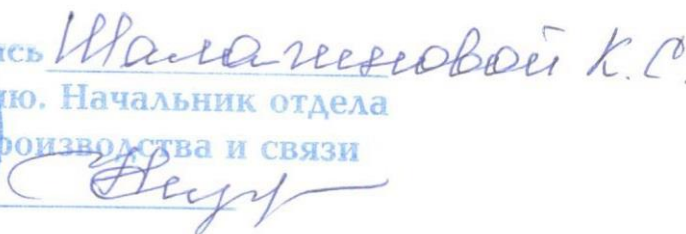 сь Шалагиновой К.С.
ю. Начальник отдела
роизводства и связи